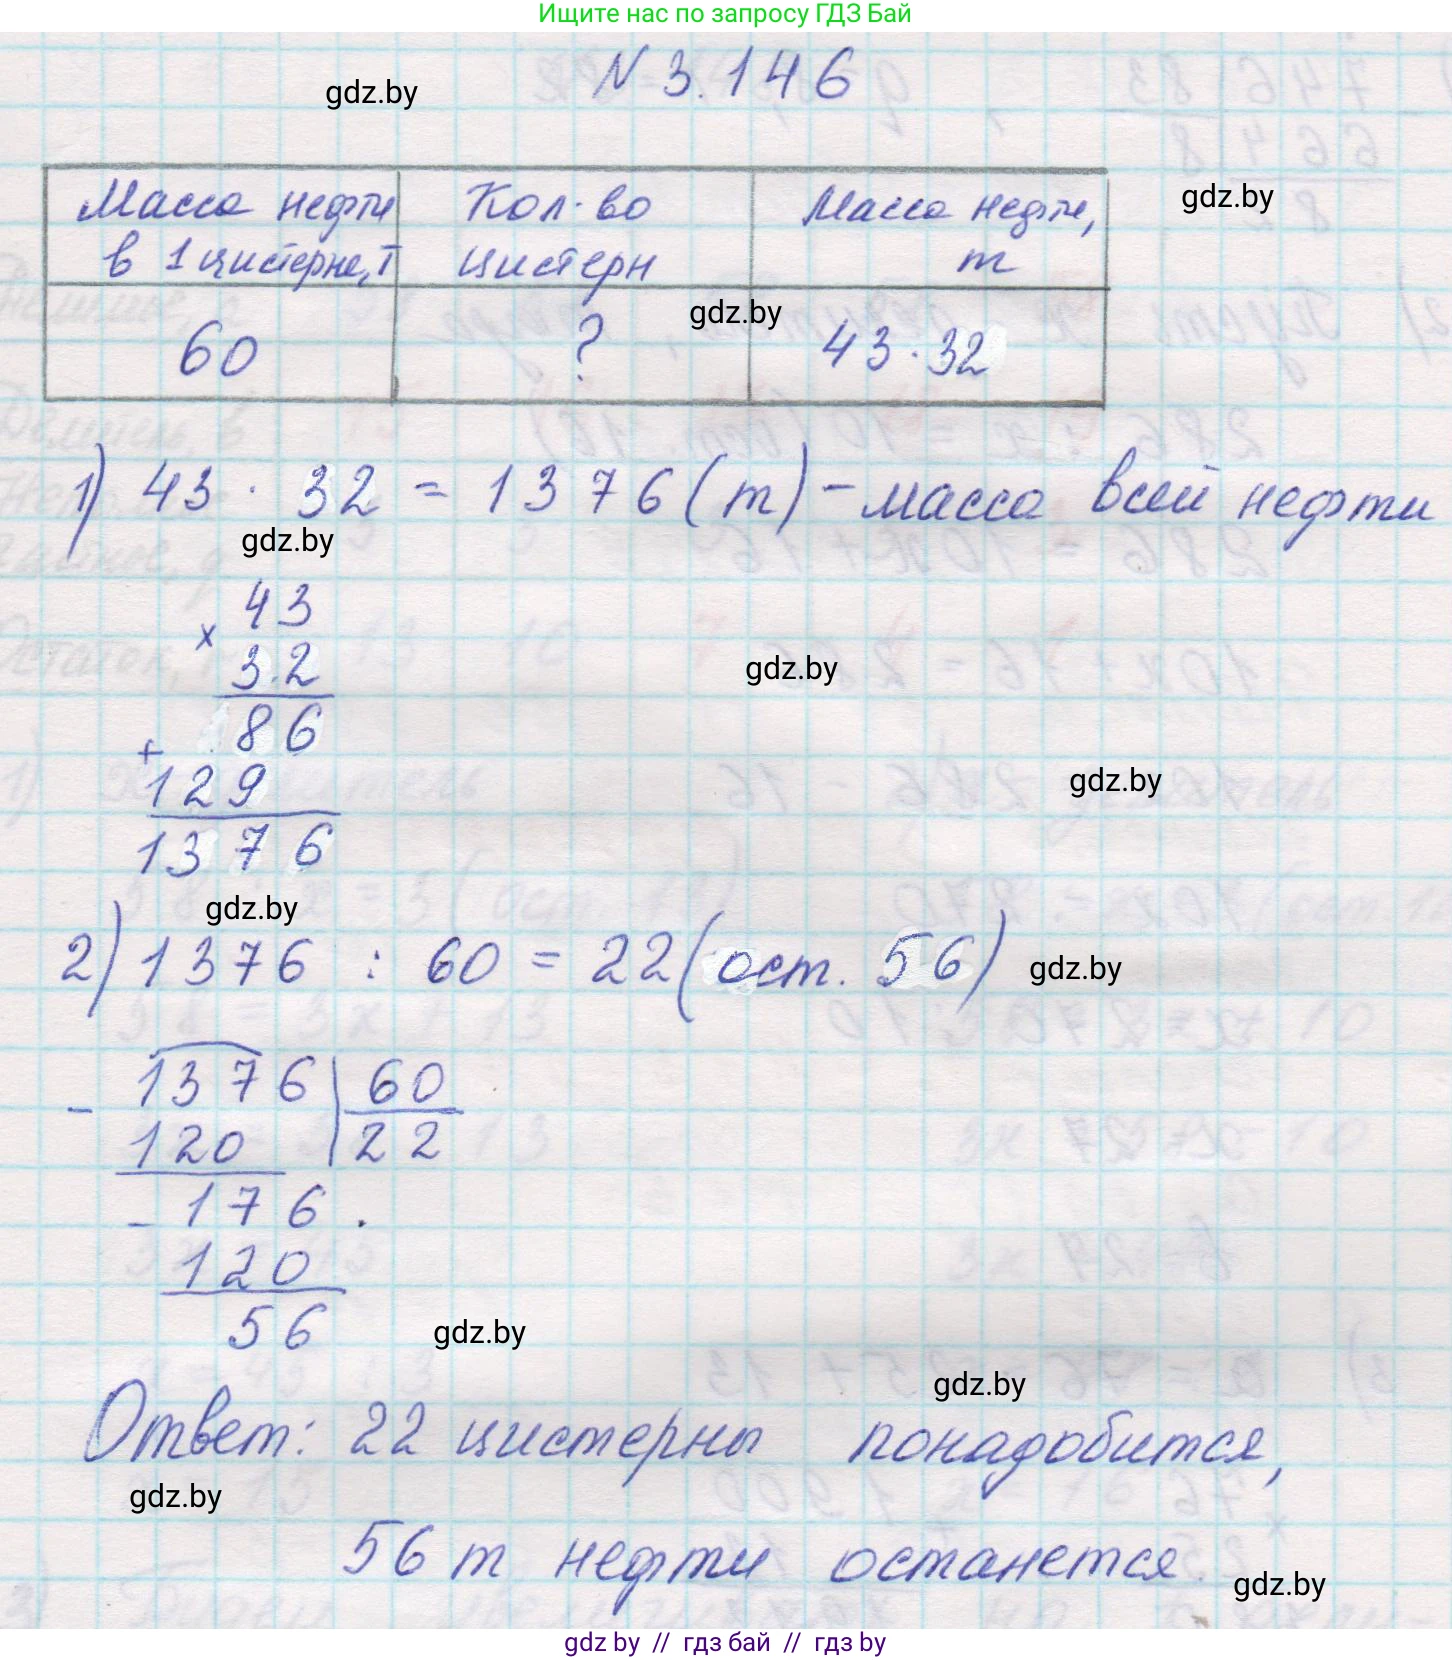 Ищите нас по запросу ГДЗ Бай
N 3.146
gdz.by
Масса нефти в 1 цистерне, т
Кол-во цистерн
Масса нефти, т
gdz.by
gdz.by
60
?
43·32
1) 43 · 32 = 1376 (т) - масса всей нефти
gdz.by
43
× 32
gdz.by
86
+
129
gdz.by
1376
gdz.by
2) 1376 : 60 = 22 (ост. 56)
gdz.by
1376 | 60
- 120 | 22
- 176
120
56
gdz.by
gdz.by
Ответ: 22 цистерны понадобится,
gdz.by
56 т нефти останется.
gdz.by
gdz by // гдз бай // гдз by